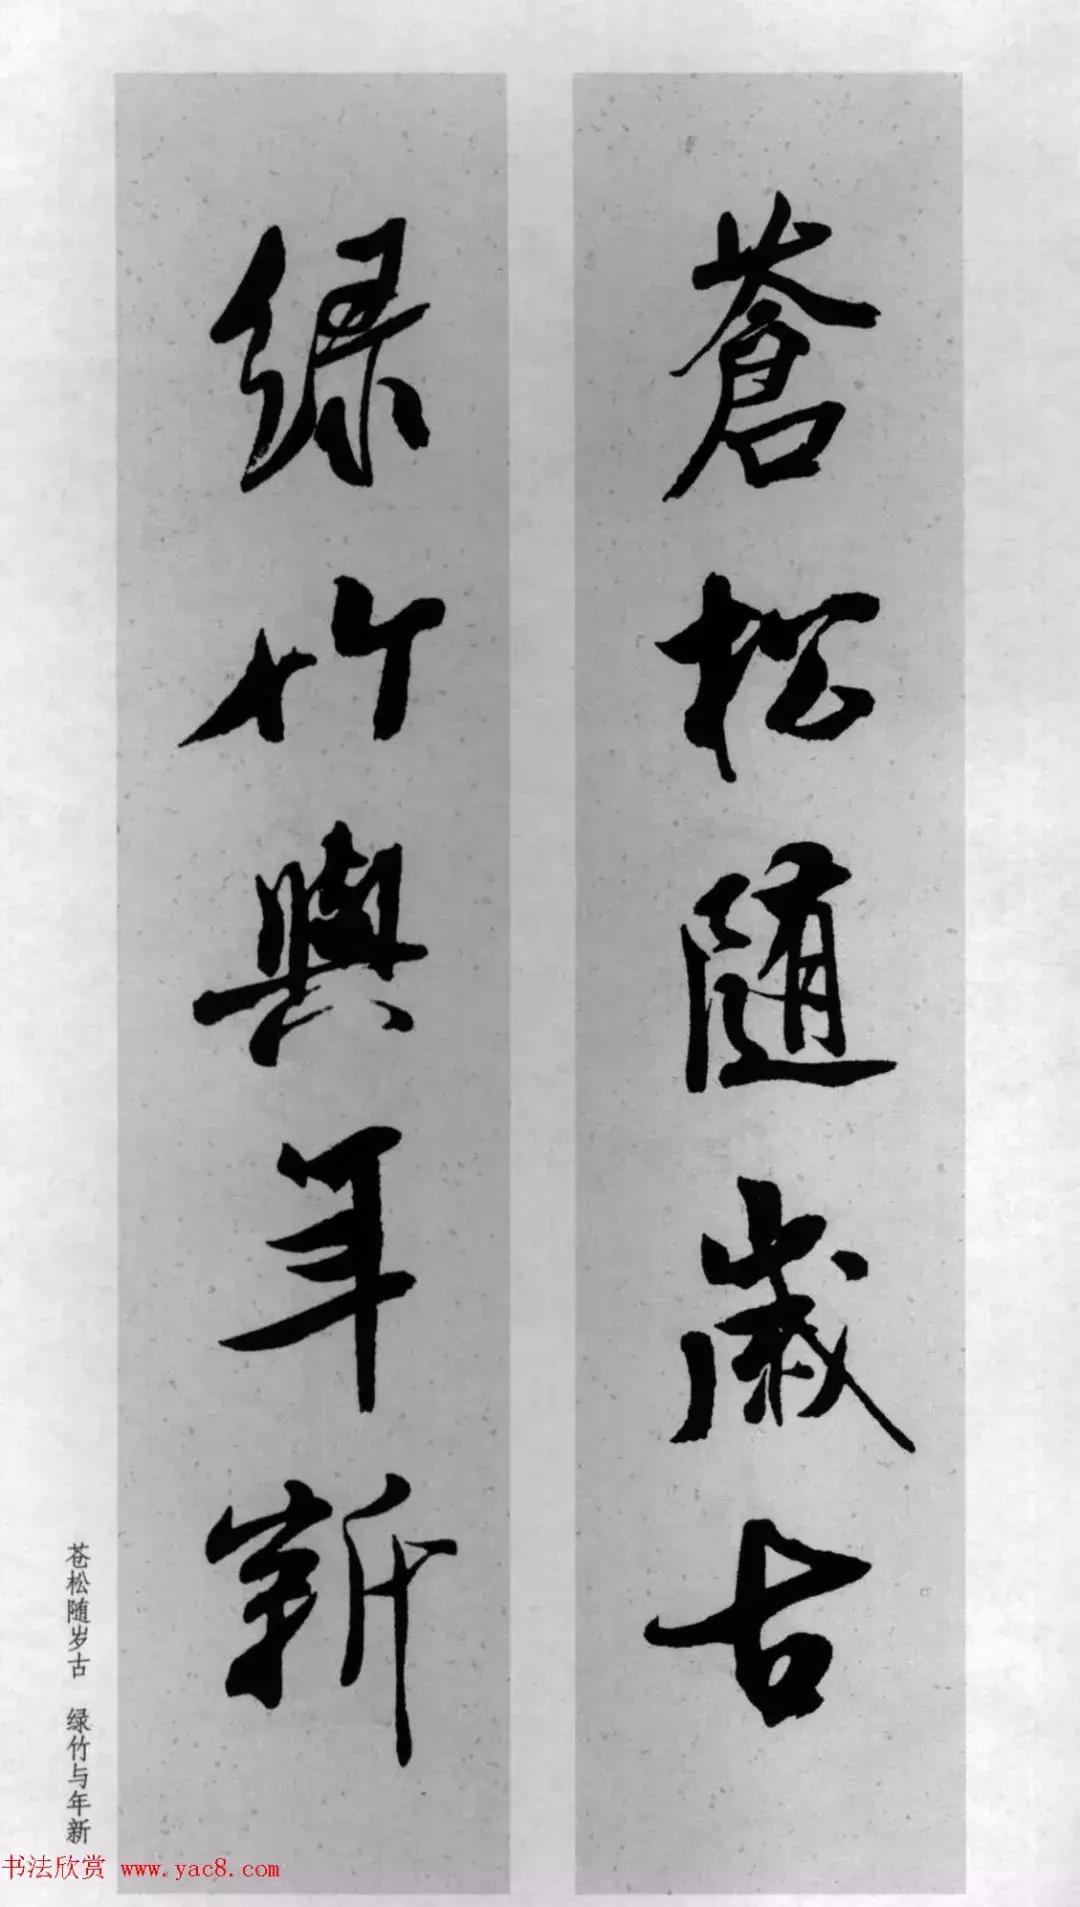 蒼松随歲古
绿竹與年新
苍松随岁古 绿竹与年新
书法欣赏 www.yac8.com